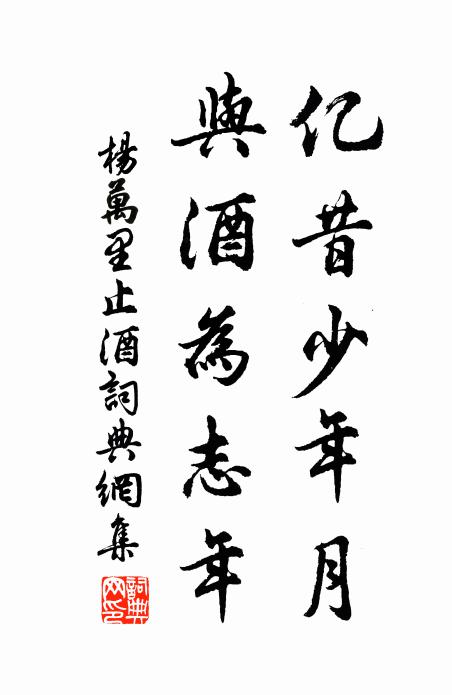 亿昔少年月
與酒為志年
楊萬里止酒詞典網集
詞典网印